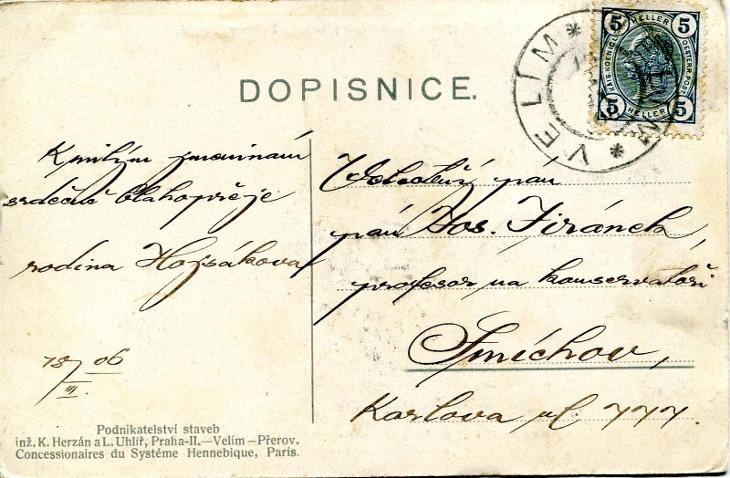 DOPISNICE.
VELIM * VELIM *
5 HELLER 5
KAIS. KOENIGL. OESTERR. POST
5 HELLER 5
K milým jmeninám
srdečně blahopřeje
rodina
18/III. 06
Velectěný pán
pán Jos. Jiránek,
profesor na konservatoři
Smíchov,
Karlova ul. 777.
Podnikatelství staveb
inž. K. Herzán a L. Uhlíř, Praha-II.—Velim—Přerov.
Concessionaires du Systéme Hennebique, Paris.